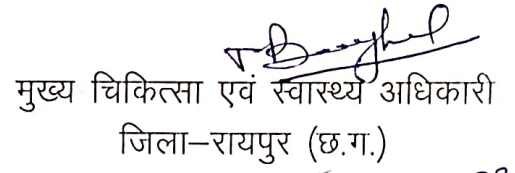 मुख्य चिकित्सा एवं स्वास्थ्य अधिकारी
जिला–रायपुर (छ.ग.)